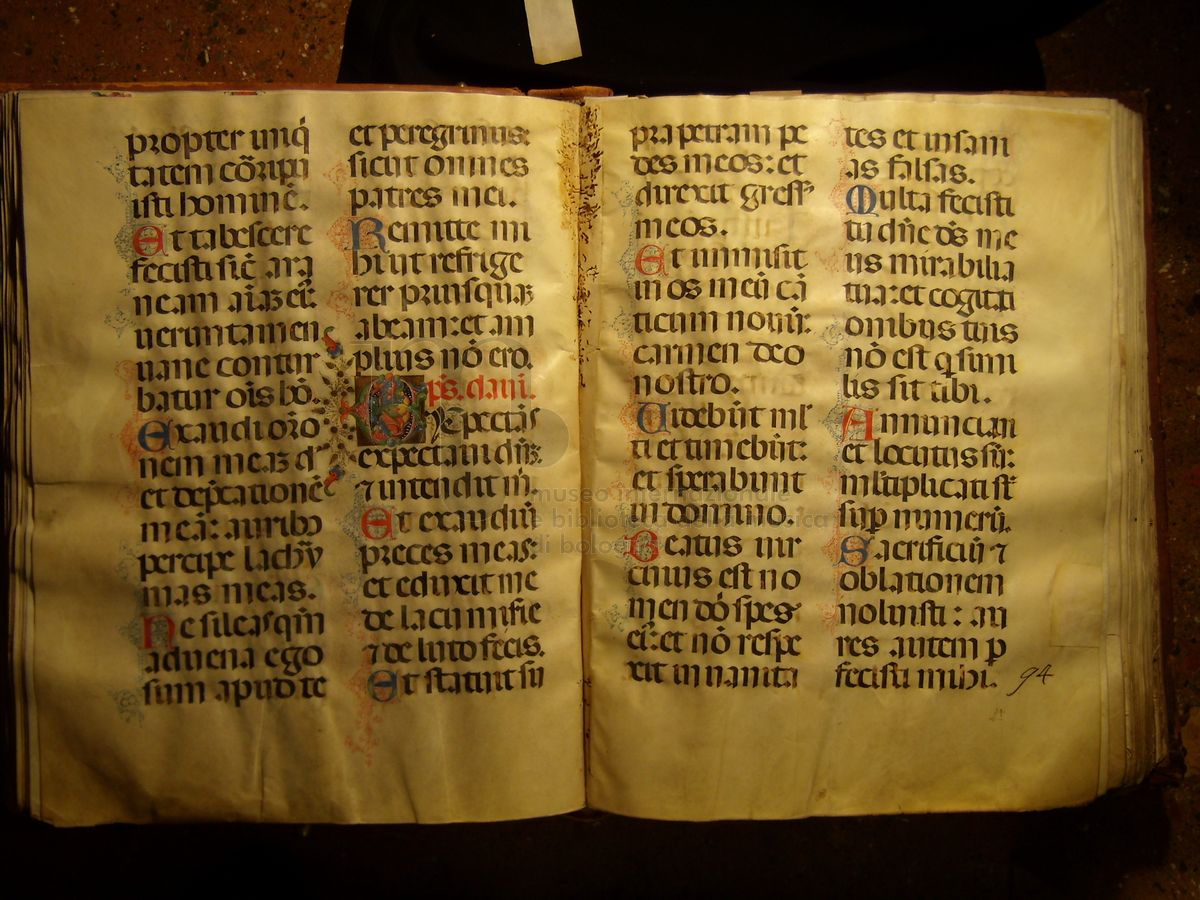 propter iniq̇
tatem cõripu
isti hominẽ.
Et tabescere
fecisti sic̃ ara
neam aĩaʒ eiꝰ:
ueruntamen
uane contur
batur oĩs hõ.
Exaudi orõ
nem meaʒ d
et dep̃cationẽ
meã: auribꝰ
percipe lachry
mas meas.
Ne sileas qm̃
aduena ego
sum apud te
et peregrinus:
sicut omnes
patres mei.
Remitte mi
hi ut refrige
rer priusquaʒ
abeam: et am
plius nõ ero.
ps̃. daui.
Expectãs
expectaui dñʒ:
⁊ intendit m̃.
Et exaudiũ
preces meas:
et eduxit me
de lacu misie
⁊ de luto fecis.
Et statuit su
pra petram pe
des meos: et
direxit gress᾽
meos.
Et immisit
in os meũ cã
ticum nouũ:
carmen deo
nostro.
Videbũt ml᾽
ti et timebũt:
et sperabunt
in domino.
Beatus uir
cuius est no
men dñi spes
ei᾽: et nõ respe
xit in uanita
tes et insani
as falsas.
Multa fecisti
tu dñe ds̃ me
us mirabilia
tua: et cogitati
onibus tuis
nõ est q simi
lis sit tibi.
Annunciaui
et locutus sũ:
ml̃tiplicati st̃
sup̱ numerũ.
Sacrificiũ ⁊
oblationem
noluisti: au
res autem ꝑ
fecisti mihi.
94
museo internazionale
e biblioteca della musica
di bologna